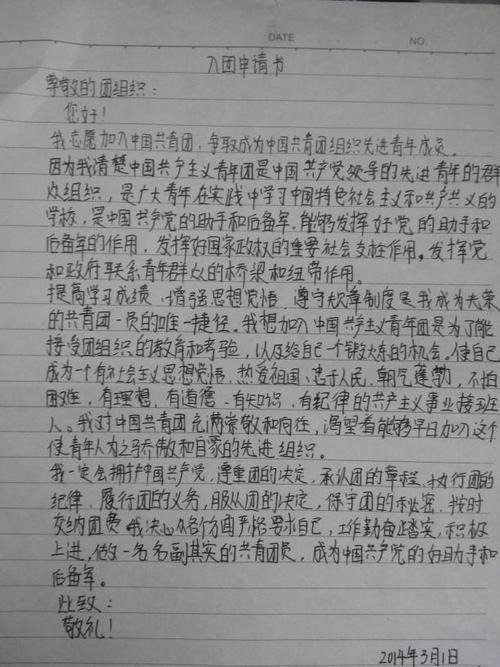 DATE NO.
入团申请书
尊敬的团组织：
您好！
我志愿加入中国共青团，争取成为中国共青团组织先进青年成员。
因为我清楚中国共产主义青年团是中国共产党领导的先进青年的群
众组织，是广大青年在实践中学习中国特色社会主义和共产共义的
学校，是中国共产党的助手和后备军。能够发挥好党的助手和
后备军的作用，发挥好国家政权的重要社会支柱作用。发挥党
和政府联系青年群众的桥梁和纽带作用。
提高学习成绩，增强思想觉悟，遵守规章制度是我成为光荣
的共青团一员的唯一捷径。我想加入中国共产主义青年团是为了能
接受团组织的教育和考验，以及给自己一个锻炼的机会。使自己
成为一个有社会主义思想觉悟、热爱祖国、忠于人民、朝气蓬勃、不怕
困难，有理想、有道德、有知识、有纪律的共产主义事业接班
人。我对中国共青团充满崇敬和向往，渴望着能够早日加入这个
使青年人为之骄傲和自豪的先进组织。
我一定会拥护中国共产党，尊重团的决定，承认团的章程，执行团的
纪律，履行团的义务，服从团的决定，保守团的秘密，按时
交纳团费。我决心从各方面严格要求自己，工作勤奋踏实，积极
上进，做一名名副其实的共青团员，成为中国共产党的好助手和
后备军。
此致：
敬礼！
2014年3月1日